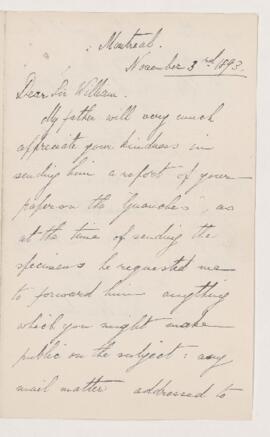 : Montreal.
November 3rd 1893.
Dear Sir William.
My father will very much
appreciate your kindness in
sending him a report of your
paper on the "Guanches", as
at the time of sending the
specimens he requested me
to forward him anything
which you might make
public on the subject: any
mail matter addressed to